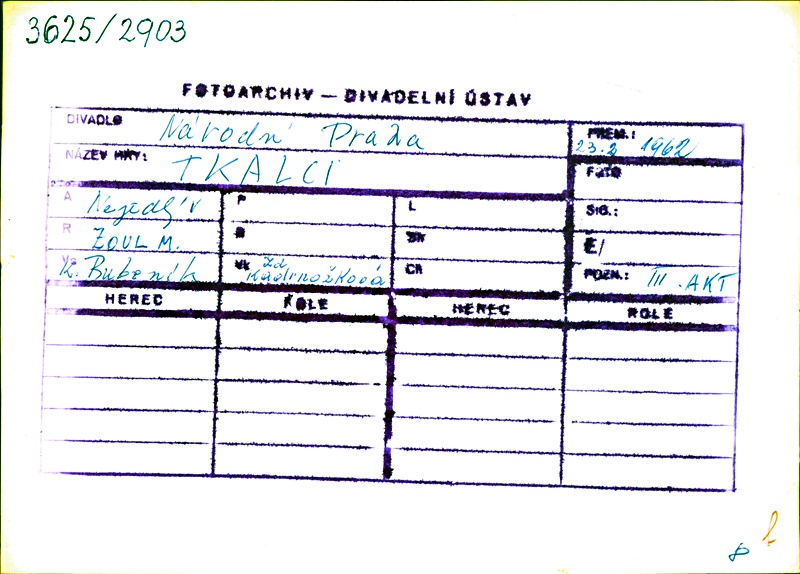 3625/2903
FOTOARCHIV — DIVADELNÍ ÚSTAV
DIVADLO Národní Praha
PREM.: 23.2 1962
NÁZEV HRY: TKALCI
FOTO
A Nejedlý V
P
L
SIG.:
R ZOUL M.
B
SM
Č/
K. Bubeník
Vk Zd Kadrnožková
CR
POZN.: III. AKT
HEREC ROLE HEREC ROLE